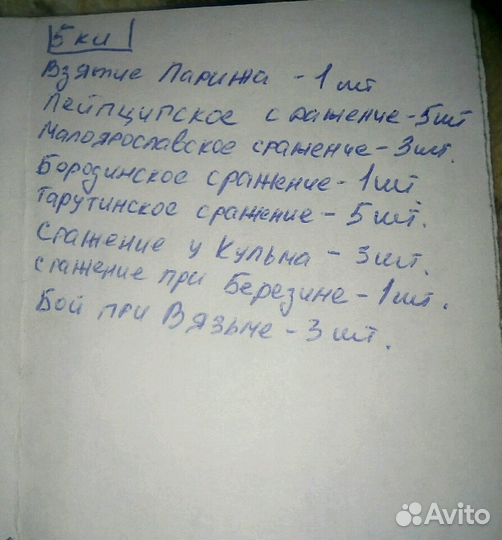 5ки
Взятие Парижа - 1 шт
Лейпцигское сражение - 5шт
Малоярославское сражение - 3шт.
Бородинское сражение - 1шт
Тарутинское сражение - 5 шт.
Сражение у Кульма - 3шт.
сражение при Березине - 1шт.
Бой при Вязьме - 3 шт.
Avito